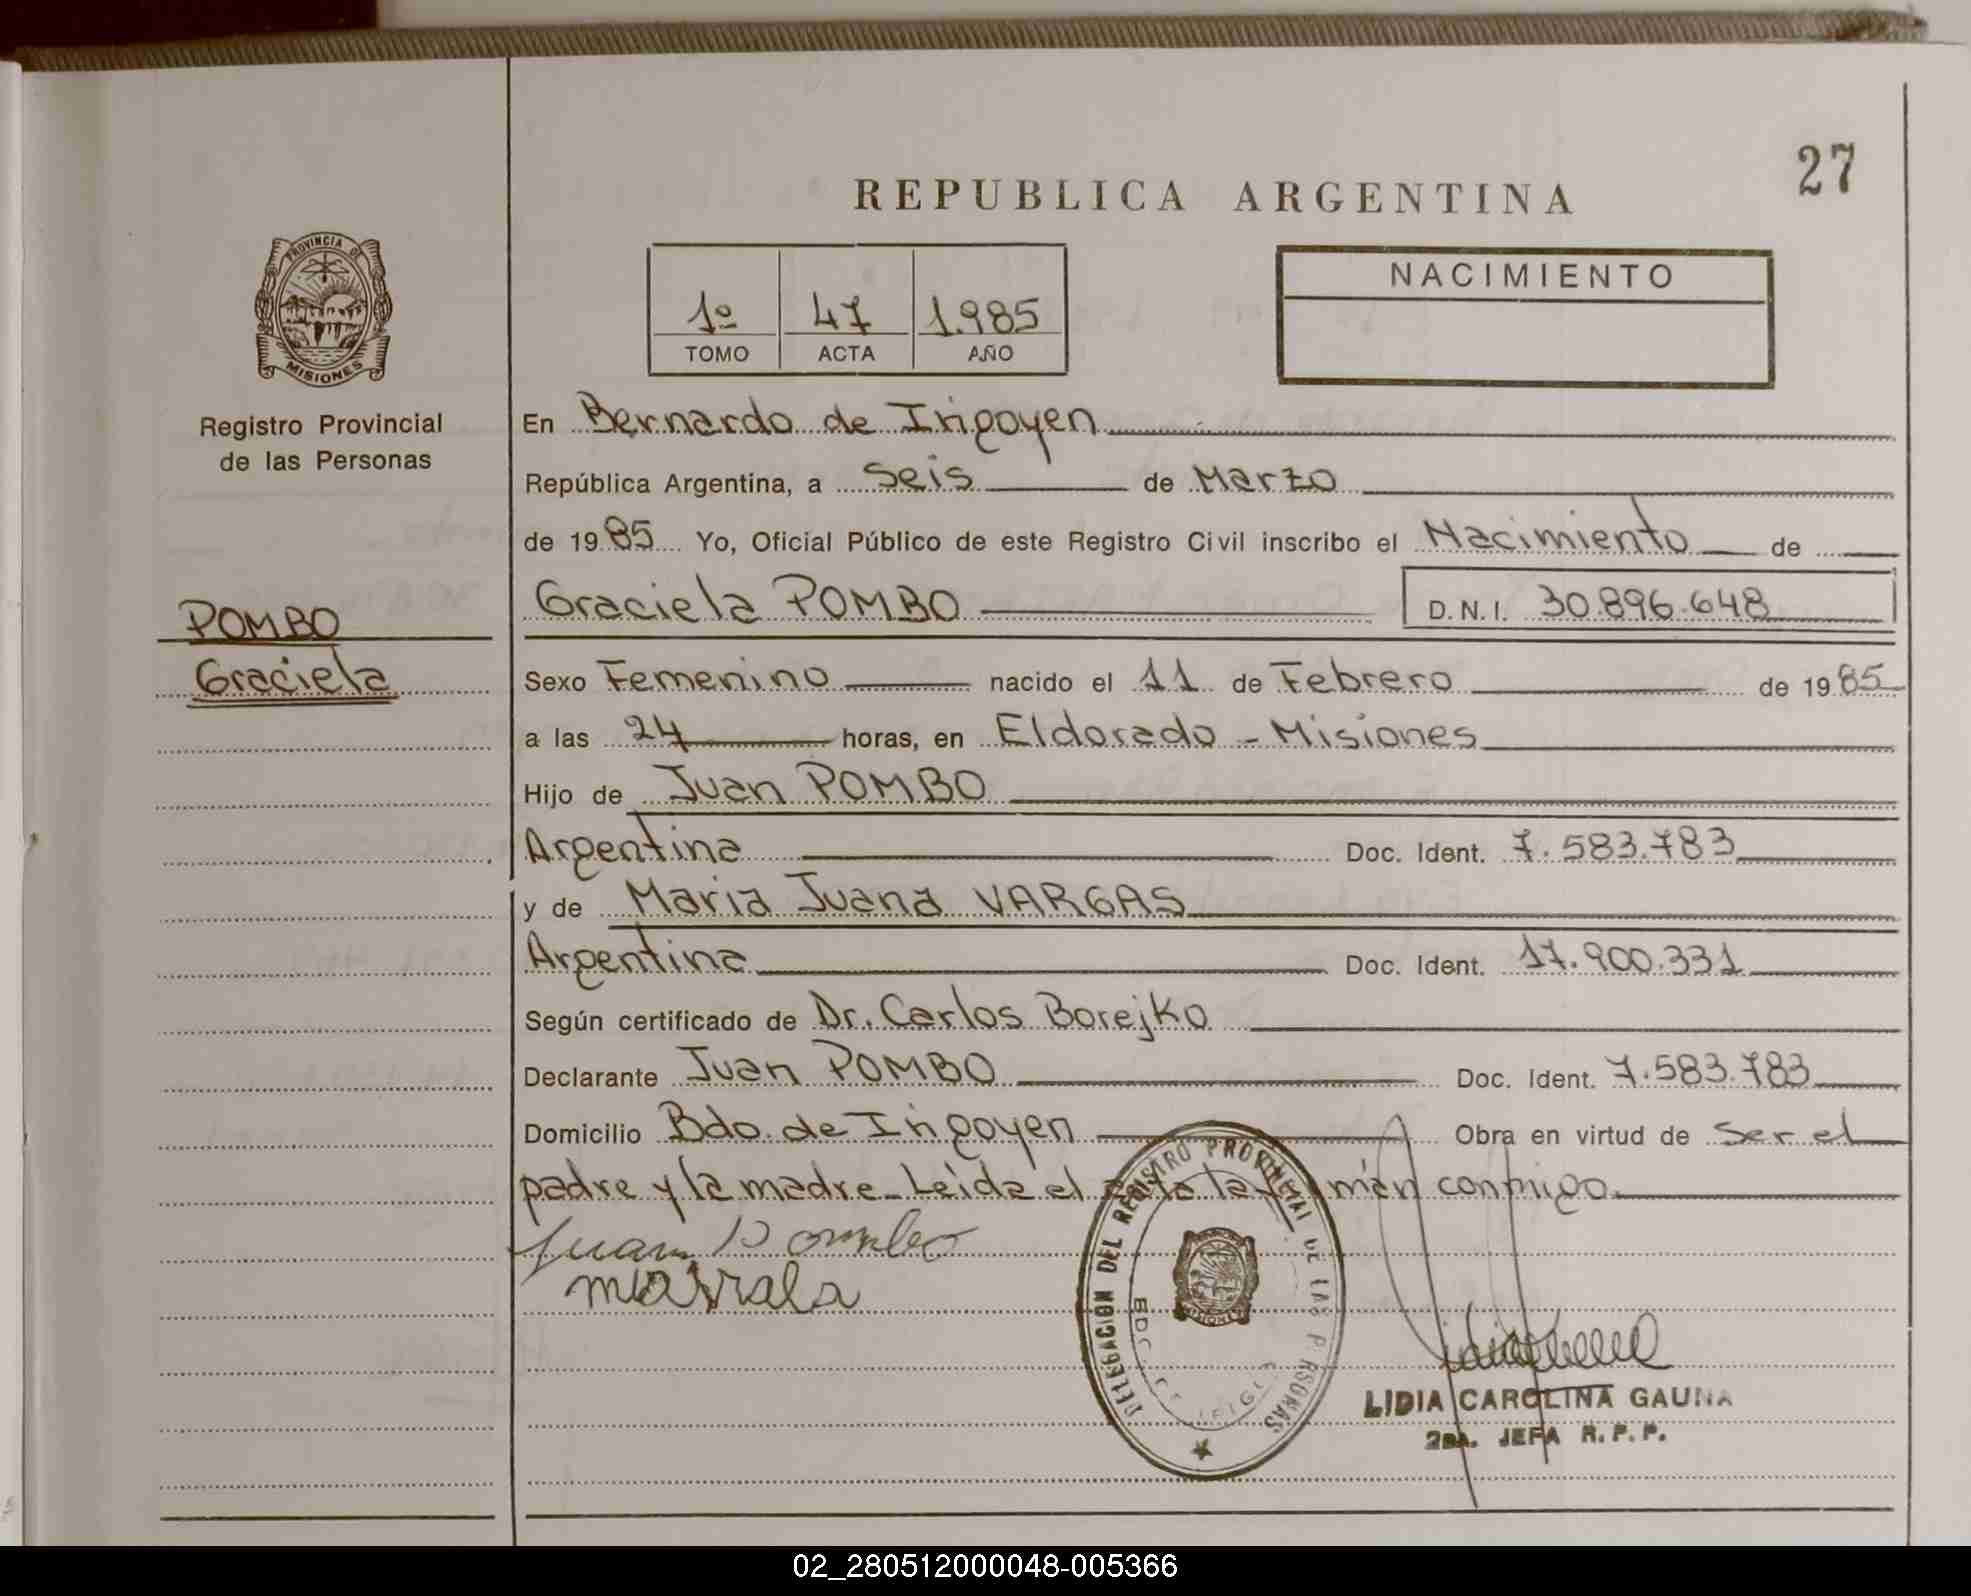 27
REPUBLICA ARGENTINA
PROVINCIA DE
MISIONES
1º 47 1.985
TOMO ACTA AÑO
NACIMIENTO
Registro Provincial
de las Personas
POMBO
Graciela
En Bernardo de Irigoyen
República Argentina, a Seis de Marzo
de 1985 Yo, Oficial Público de este Registro Civil inscribo el Nacimiento de
Graciela POMBO D.N.I. 30.896.648
Sexo Femenino nacido el 11 de Febrero de 1985
a las 24 horas, en Eldorado - Misiones
Hijo de Juan POMBO
Argentina Doc. Ident. 7.583.783
y de Maria Juana VARGAS
Argentina Doc. Ident. 17.900.331
Según certificado de Dr. Carlos Borejko
Declarante Juan POMBO Doc. Ident. 7.583.783
Domicilio Bdo. de Irigoyen Obra en virtud de Ser el
padre y la madre_ Leída el acta la firmán conmigo.
Juan Pombo
DELEGACION DEL REGISTRO PROVINCIAL DE LAS PERSONAS
MISIONES
LIDIA CAROLINA GAUNA
2DA. JEFA R.P.P.
02_280512000048-005366